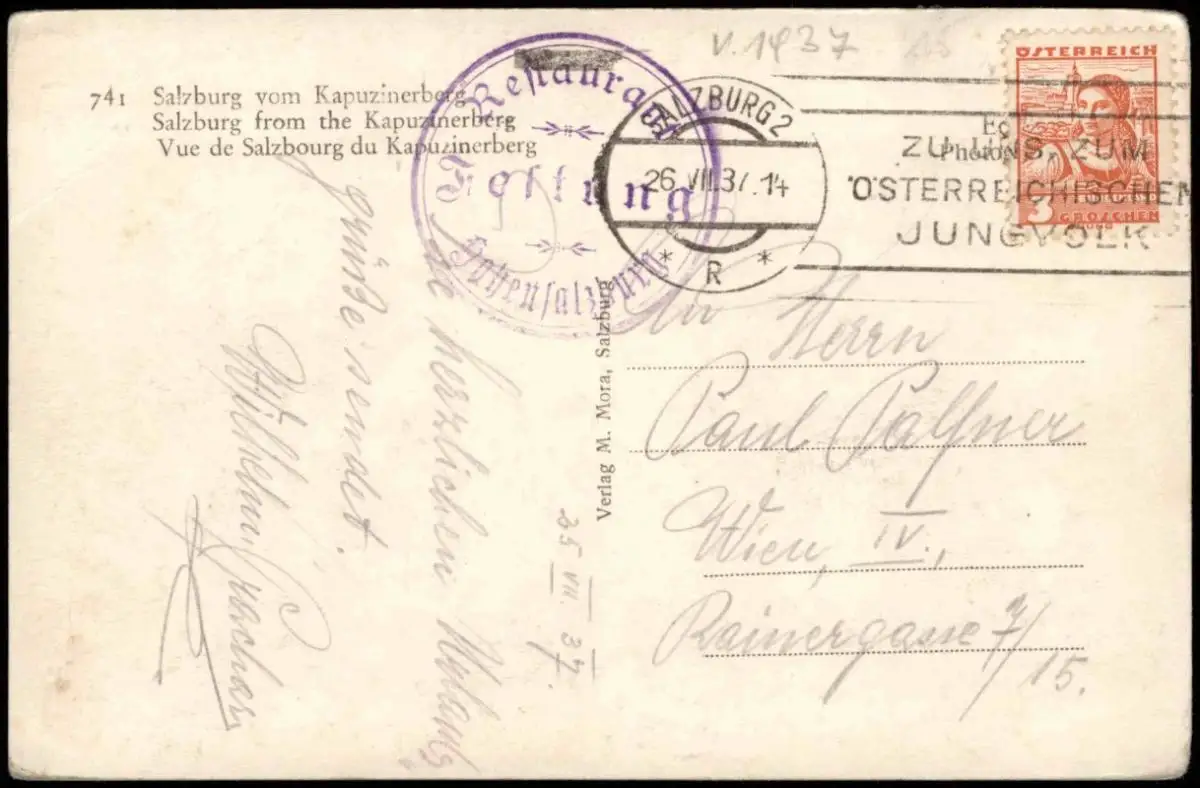 v. 1937
741 Salzburg vom Kapuzinerberg
Salzburg from the Kapuzinerberg
Vue de Salzbourg du Kapuzinerberg
Restaurant
Festung
Hohensalzburg
SALZBURG 2
26.VII.37.14
* R *
ZU UNS, ZUM
ÖSTERREICHISCHEN
JUNGVOLK
ÖSTERREICH
3 GROSCHEN
Verlag M. Mora, Salzburg
Die herzlichen Urlaubs
grüße sendet.
Wilhelm
25. VII. 37.
An Herrn
Paul Palfner
Wien, IV.,
Rainergasse 7/
15.